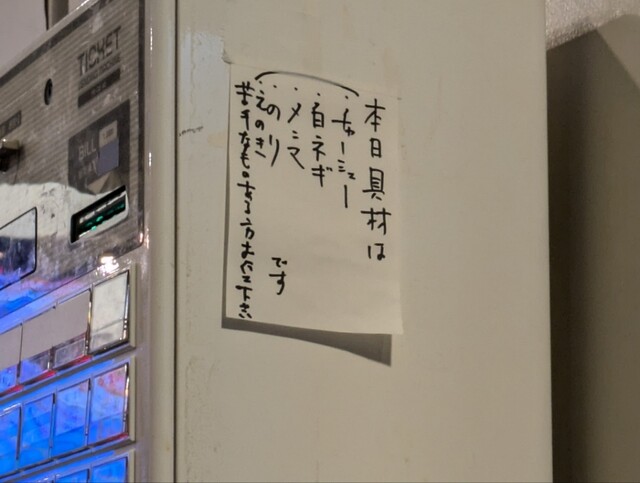 本日具材は
・チャーシュー
・白ネギ
・メンマ
・のり
・えのき
です
苦手なものある方お伝え下さい
TICKET
BILL